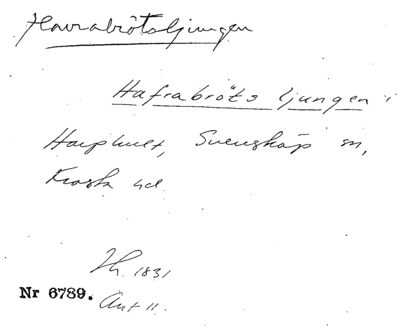 Havrabrötsljungen
Hafrabröts ljungen i
Harphult, Svensköp sn,
Frosta hd
Lh. 1831
Nr 6789. Ant 11.